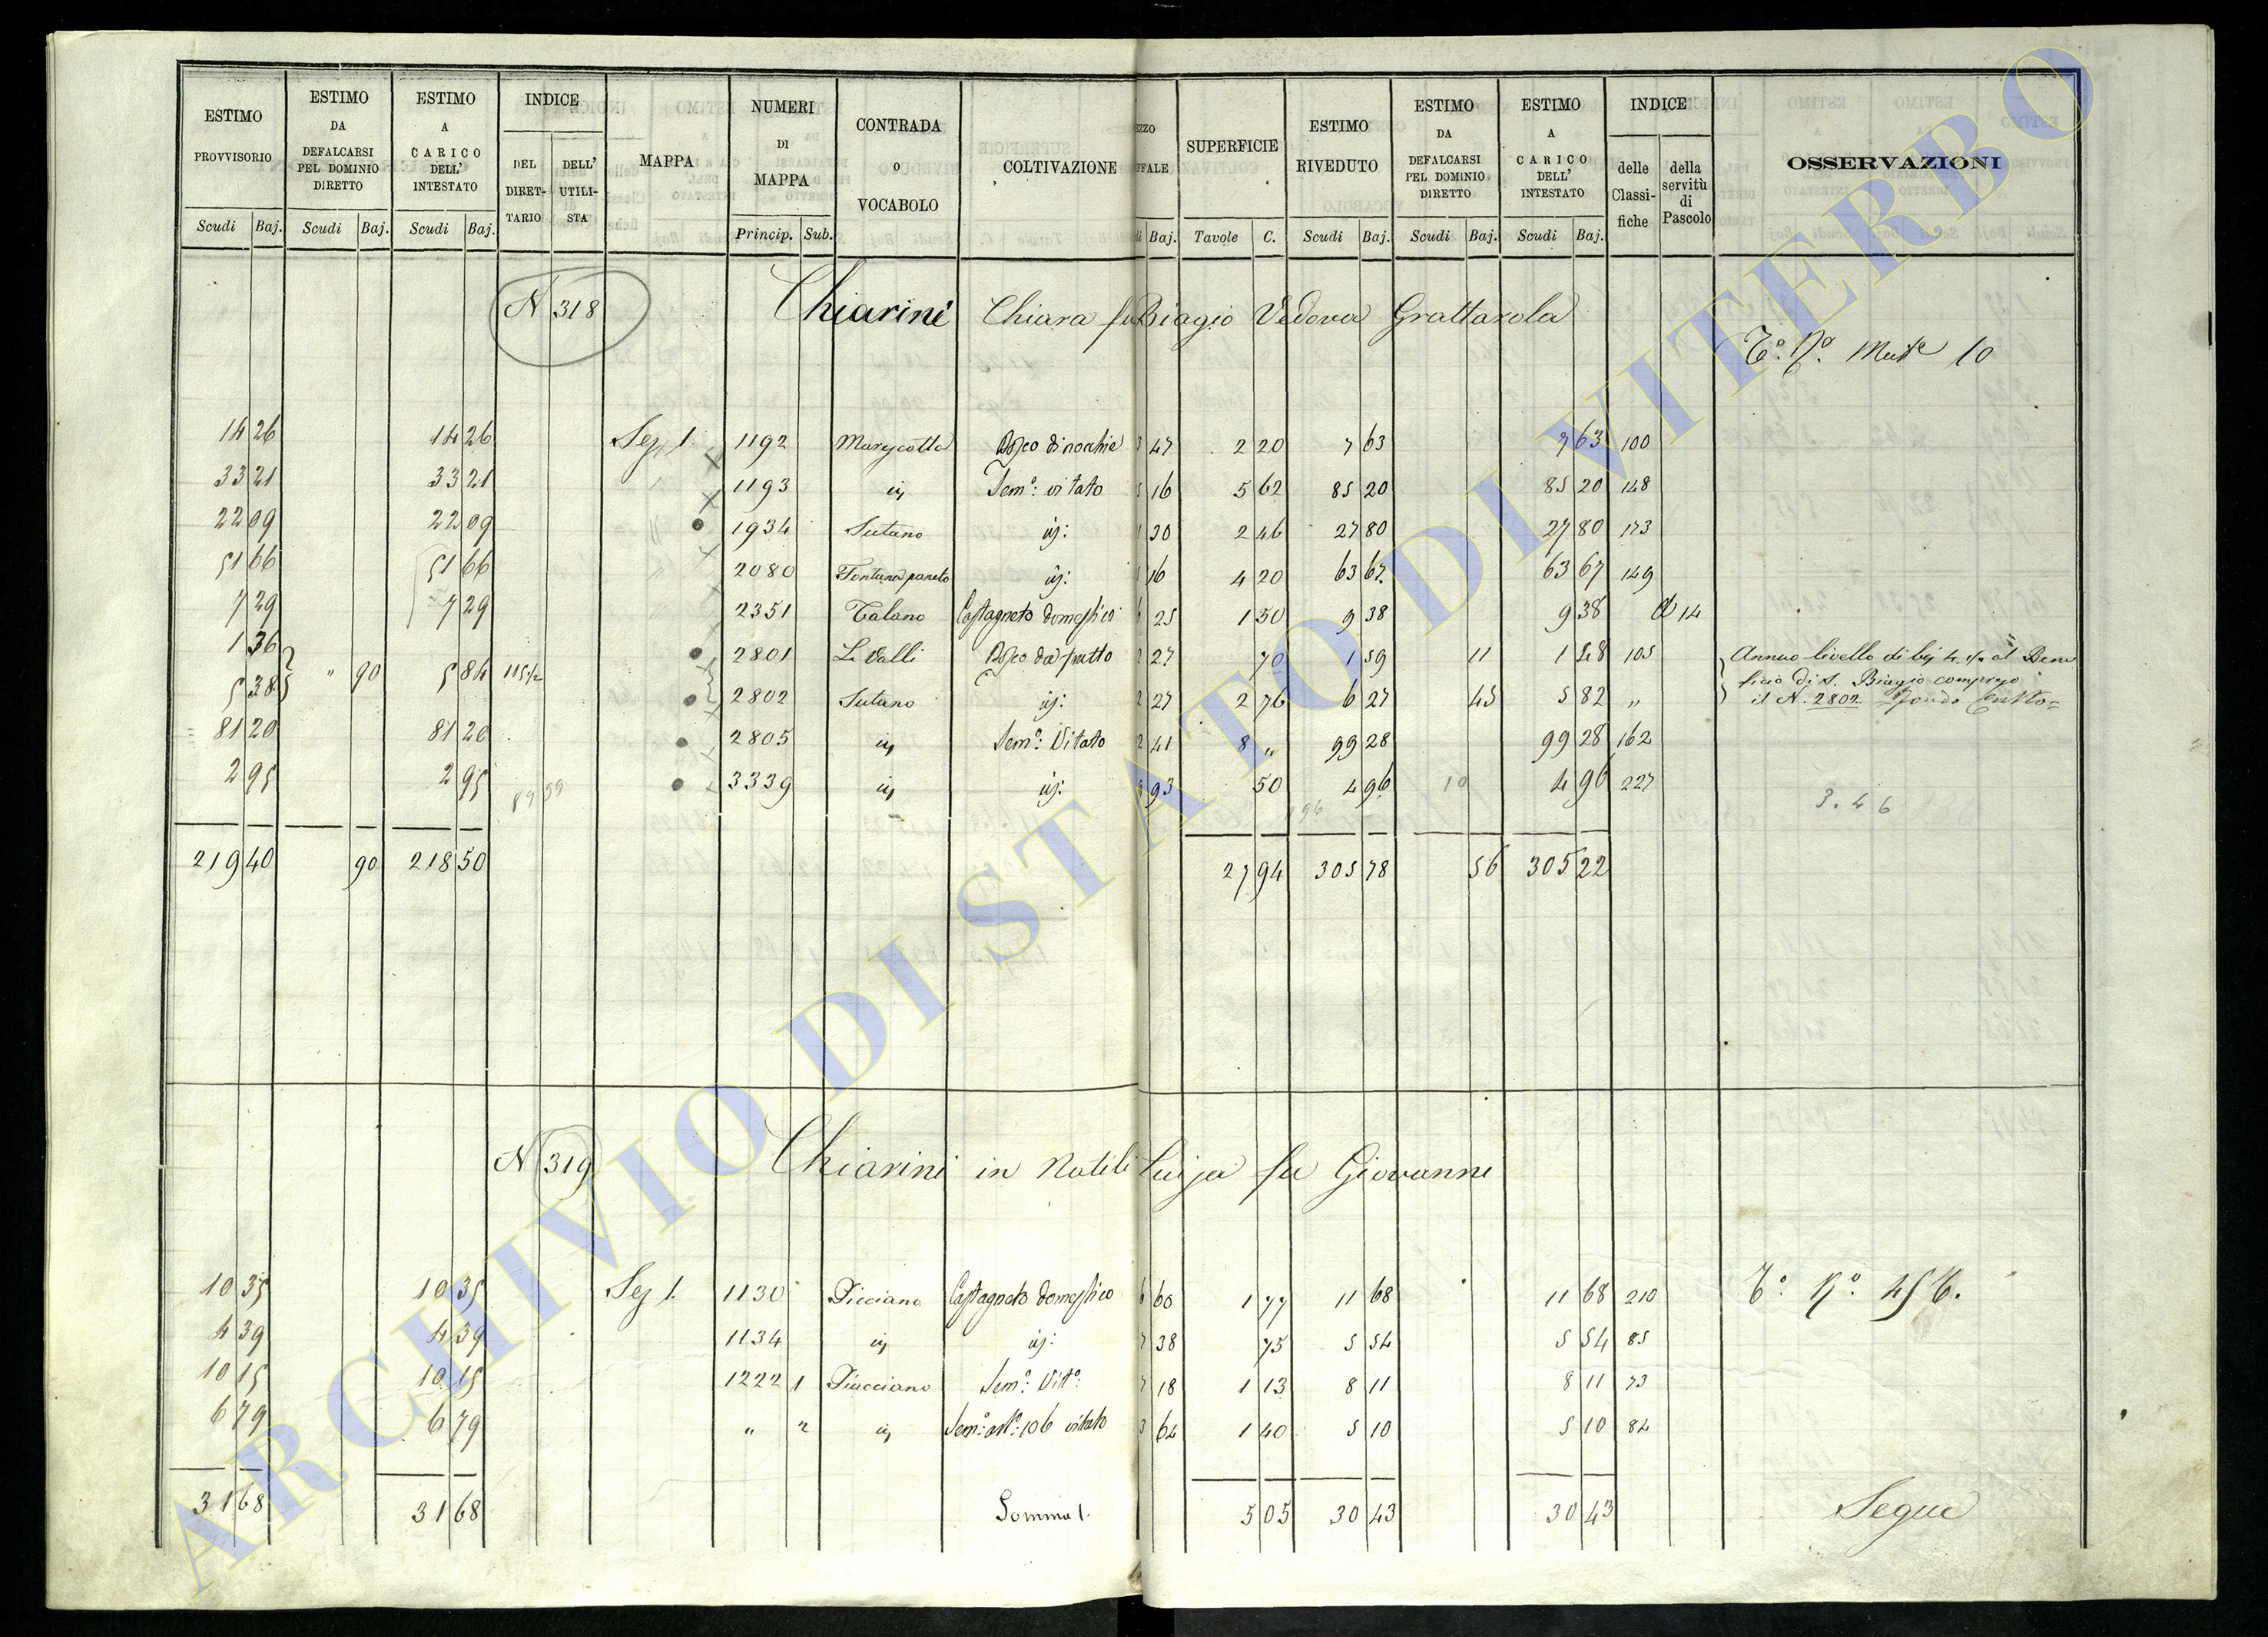 ESTIMO PROVVISORIO
ESTIMO DA DEFALCARSI PEL DOMINIO DIRETTO
ESTIMO A CARICO DELL' INTESTATO
INDICE
DEL DIRET- TARIO
DELL' UTILI- STA
MAPPA
NUMERI DI MAPPA
CONTRADA O VOCABOLO
COLTIVAZIONE
EZZO
FFALE
SUPERFICIE
ESTIMO RIVEDUTO
ESTIMO DA DEFALCARSI PEL DOMINIO DIRETTO
ESTIMO A CARICO DELL' INTESTATO
INDICE
delle Classi- fiche
della servitù di Pascolo
OSSERVAZIONI
Scudi Baj. Scudi Baj. Scudi Baj. Princip. Sub. di Baj. Tavole C. Scudi Baj. Scudi Baj. Scudi Baj.
N 318 Chiarini Chiara fu Biagio Vedova Grattarola
14 26 14 26 Sez 1. 1192 Bosco di nocchie 3 47 2 20 7 63 7 63 100
33 21 33 21 1193 Sem.º vitato 5 16 5 62 85 20 85 20 148
22 09 22 09 1934 Sutano 1 30 2 46 27 80 27 80 173
51 66 51 66 2080 Fontana paneto 16 4 20 63 67 63 67 149
7 29 7 29 2351 Talano Castagneto domestico 6 25 1 50 9 38 9 38 14
1 36 2801 Le Valli Bosco da frutto 2 27 70 1 59 11 1 48 105 Annuo livello di bj 4 1/2 al Bene
5 38 " 90 5 84 115 1/2 2802 Sutano 2 27 2 76 6 27 45 5 82 " ficio di S. Biagio compreso
il N. 2802
81 20 81 20 2805 Sem.º Vitato 2 41 8 " 99 28 99 28 162
2 95 2 95 3339 93 50 4 96 10 4 96 227
3.46
219 40 90 218 50 27 94 305 78 56 305 22
N 319 Chiarini in Natili Luisa fu Giovanni
10 35 10 35 Sez 1. 1130 Picciano Castagneto domestico 6 60 1 77 11 68 11 68 210
4 39 4 39 1134 7 38 75 5 54 5 54 85
10 15 10 15 1222 1 Piucciano Sem.º Vitt.º 7 18 1 13 8 11 8 11 73
6 79 6 79 " 2 vitato 3 64 1 40 5 10 5 10 84
31 68 31 68 Somma 1. 5 05 30 43 30 43 Segue
ARCHIVIO DI STATO DI VITERBO